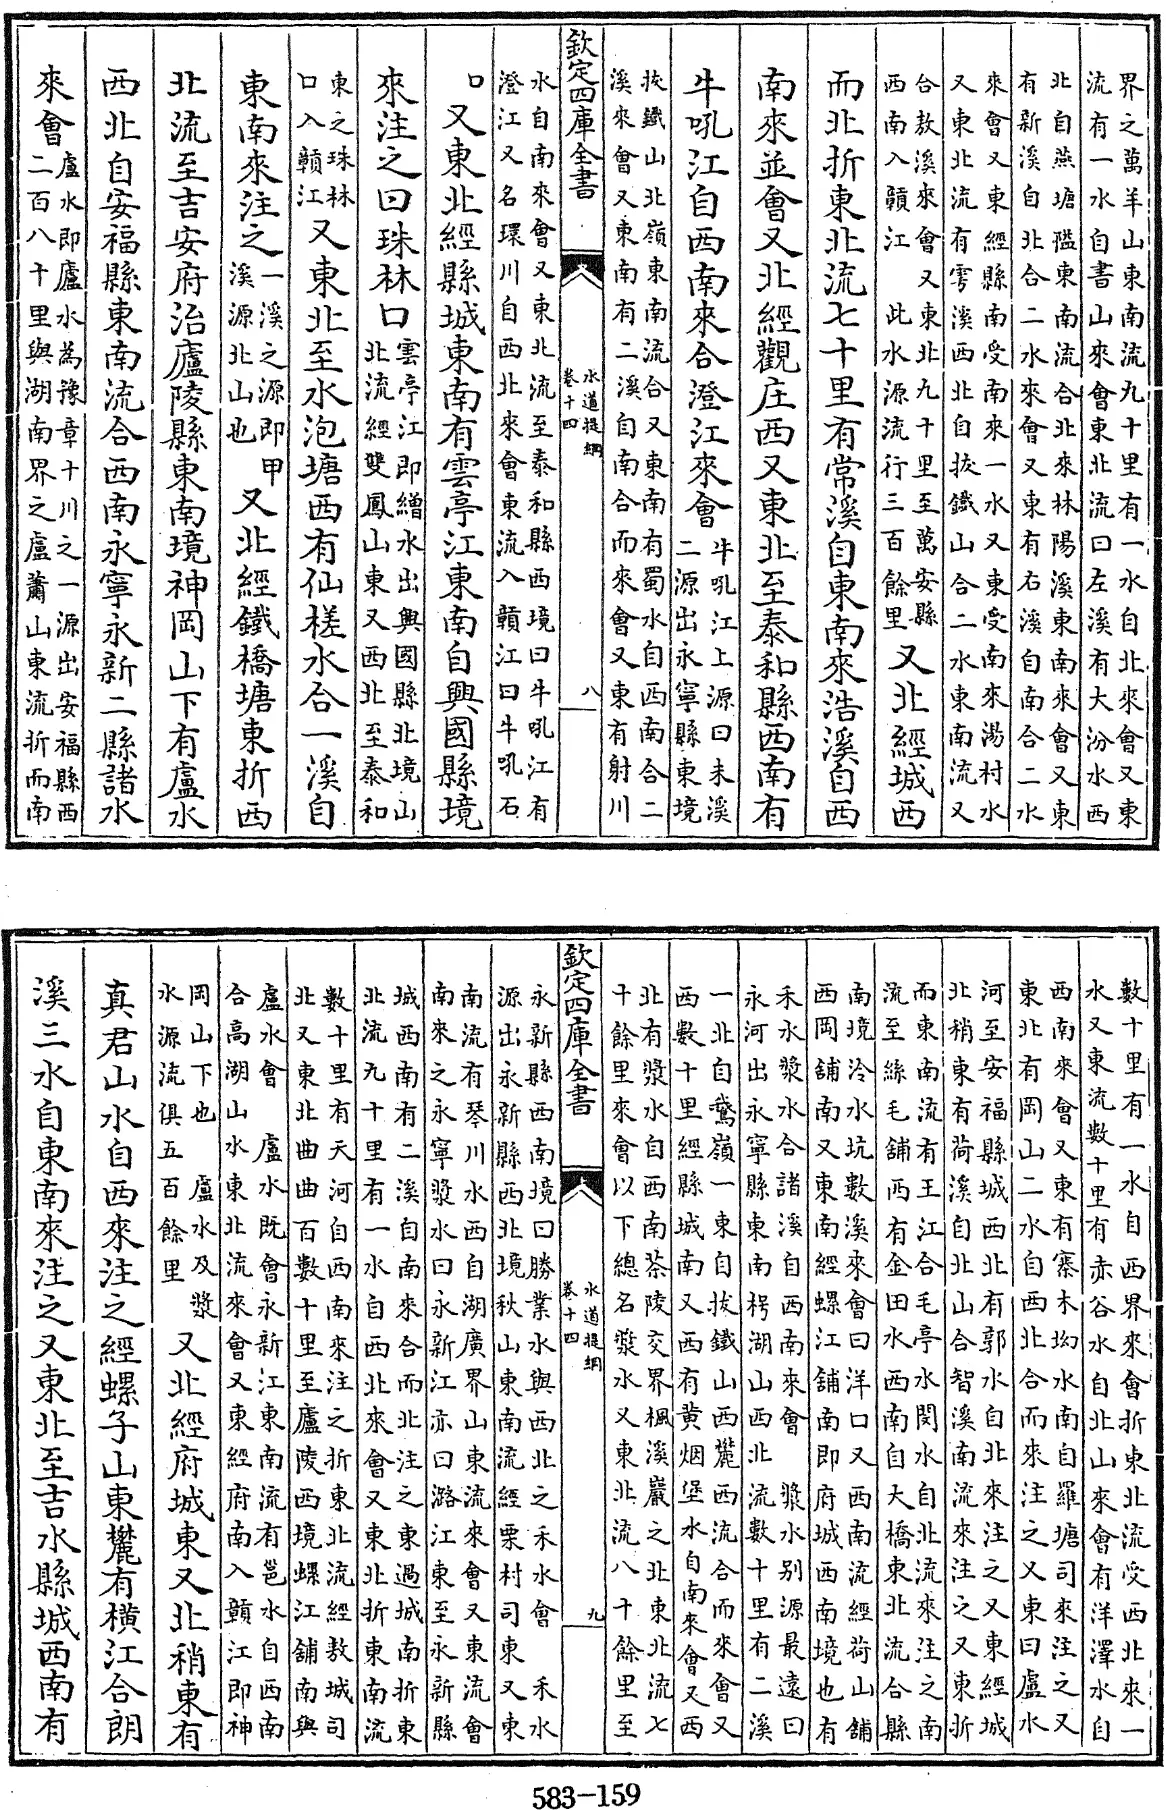 界之萬羊山東南流九十里有一水自北來會又東
流有一水自書山來會東北流曰左溪有大汾水西
北自燕塘隘東南流合北來林陽溪東南來會又東
有新溪自北合二水來會又東有右溪自南合二水
來會又東經縣南受南來一水又東受南來湯村水
又東北流有雩溪西北自拔鐵山合二水東南流又
合敖溪來會又東北九十里至萬安縣
西南入贛江 此水源流行三百餘里 又北經城西
而北折東北流七十里有常溪自東南來浩溪自西
南來並會又北經觀庄西又東北至泰和縣西南有
牛吼江自西南來合澄江來會 牛吼江上源曰未溪
二源出永寧縣東境
拔鐵山北嶺東南流合又東南有蜀水自西南合二
溪來會又東南有二溪自南合而來會又東有射川
欽定四庫全書
水道提綱
卷十四
八
水自南來會又東北流至泰和縣西境曰牛吼江有
澄江又名環川自西北來會東流入贛江曰牛吼石
口 又東北經縣城東南有雲亭江東南自興國縣境
來注之曰珠林口 雲亭江即繒水出興國縣北境山
北流經雙鳳山東又西北至泰和
東之珠林
口入贛江 又東北至水泡塘西有仙槎水合一溪自
東南來注之 一溪之源即甲
溪源北山也 又北經鐵橋塘東折西
北流至吉安府治廬陵縣東南境神岡山下有廬水
西北自安福縣東南流合西南永寧永新二縣諸水
來會 廬水即廬水為豫章十川之一源出安福縣西
二百八十里與湖南界之盧蕭山東流折而南
數十里有一水自西界來會折東北流受西北來一
水又東流數十里有赤谷水自北山來會有洋澤水自
西南來會又東有寨木㘭水南自羅塘司來注之又
東北有岡山二水自西北合而來注之又東曰廬水
河至安福縣城西北有郭水自北來注之又東經城
北稍東有荷溪自北山合智溪南流來注之又東折
而東南流有王江合毛亭水閔水自北流來注之南
流至絲毛舖西有金田水西南自大橋東北流合縣
南境泠水坑數溪來會曰洋口又西南流經荷山舖
西岡舖南又東南經螺江舖南即府城西南境也有
禾水漿水合諸溪自西南來會 漿水別源最遠曰
永河出永寧縣東南梬湖山西北流數十里有二溪
一北自鵞嶺一東自拔鐵山西麓西流合而來會又
西數十里經縣城南又西有黄烟堡水自南來會又西
北有漿水自西南茶陵交界楓溪巖之北東北流七
十餘里來會以下總名漿水又東北流八十餘里至
欽定四庫全書
水道提綱
卷十四
九
永新縣西南境曰勝業水與西北之禾水會 禾水
源出永新縣西北境秋山東南流經栗村司東又東
南流有琴川水西自湖廣界山東流來會又東流會
南來之永寧漿水曰永新江亦曰潞江東至永新縣
城西南有二溪自南來合而北注之東過城南折東
北流九十里有一水自西北來會又東北折東南流
數十里有天河自西南來注之折東北流經敖城司
北又東北曲曲百數十里至廬陵西境螺江舖南與
盧水會 盧水既會永新江東南流有邕水自西南
合高湖山水東北流來會又東經府南入贛江即神
岡山下也 廬水及漿
水源流俱五百餘里 又北經府城東又北稍東有
真君山水自西來注之經螺子山東麓有橫江合朗
溪三水自東南來注之又東北至吉水縣城西南有
583-159